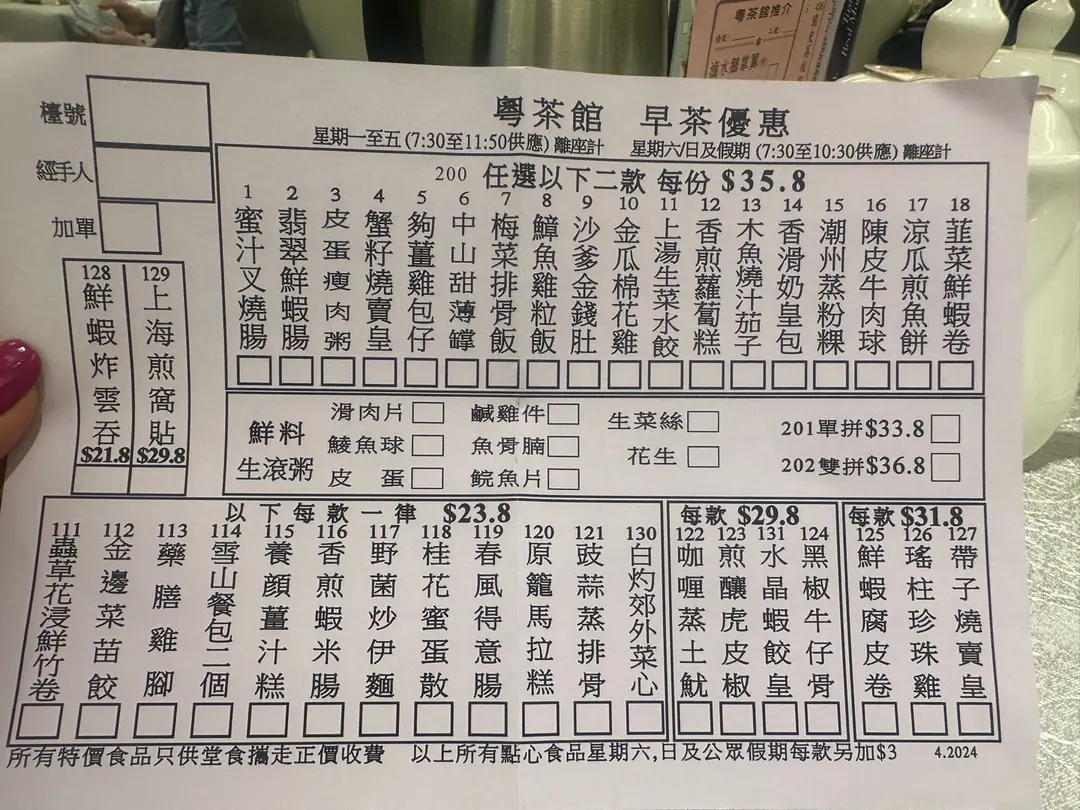 粵茶館推介
粵茶館 早茶優惠
星期一至五 (7:30至11:50供應) 離座計 星期六/日及假期 (7:30至10:30供應) 離座計
檯號
經手人
加單
200 任選以下二款 每份 $35.8
1 蜜汁叉燒腸
2 翡翠鮮蝦腸
3 皮蛋瘦肉粥
4 蟹籽燒賣皇
5 夠薑雞包仔
6 中山甜薄罉
7 梅菜排骨飯
8 鱆魚雞粒飯
9 沙爹金錢肚
10 金瓜棉花雞
11 上湯生菜水餃
12 香煎蘿蔔糕
13 木魚燒汁茄子
14 香滑奶皇包
15 潮州蒸粉粿
16 陳皮牛肉球
17 涼瓜煎魚餅
18 韮菜鮮蝦卷
128 鮮蝦炸雲吞 $21.8
129 上海煎窩貼 $29.8
鮮料生滾粥
滑肉片 鹹雞件 生菜絲 201單拼$33.8
鯪魚球 魚骨腩 花生 202雙拼$36.8
皮蛋 鯇魚片
以下每款一律 $23.8
111 蟲草花浸鮮竹卷
112 金邊菜苗餃
113 藥膳雞腳
114 雪山餐包二個
115 養顏薑汁糕
116 香煎蝦米腸
117 野菌炒伊麵
118 桂花蜜蛋散
119 春風得意腸
120 原籠馬拉糕
121 豉蒜蒸排骨
130 白灼郊外菜心
每款 $29.8
122 咖喱蒸土魷
123 煎釀虎皮椒
131 水晶蝦餃皇
124 黑椒牛仔骨
每款 $31.8
125 鮮蝦腐皮卷
126 瑤柱珍珠雞
127 帶子燒賣皇
所有特價食品只供堂食攜走正價收費 以上所有點心食品星期六,日及公眾假期每款另加$3 4.2024